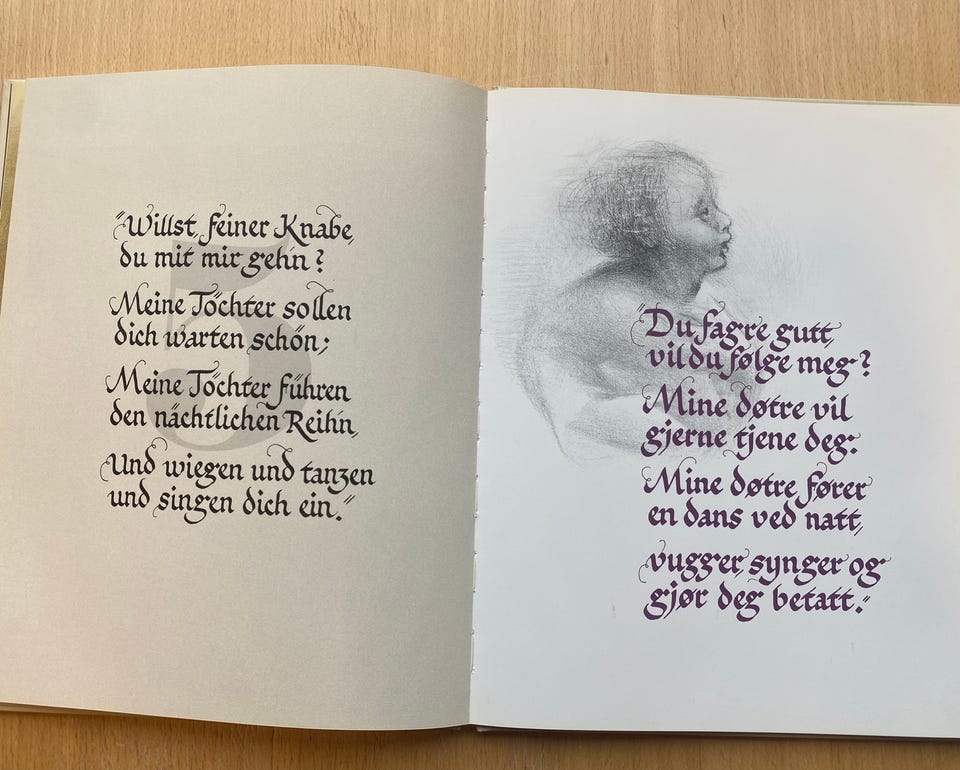 "Willst, feiner Knabe,
du mit mir gehn?
Meine Töchter sollen
dich warten schön;
Meine Töchter führen
den nächtlichen Reihn,
Und wiegen und tanzen
und singen dich ein."
5
"Du fagre gutt,
vil du følge meg?
Mine døtre vil
gjerne tjene deg:
Mine døtre fører
en dans ved natt,
vugger, synger og
gjør deg betatt."